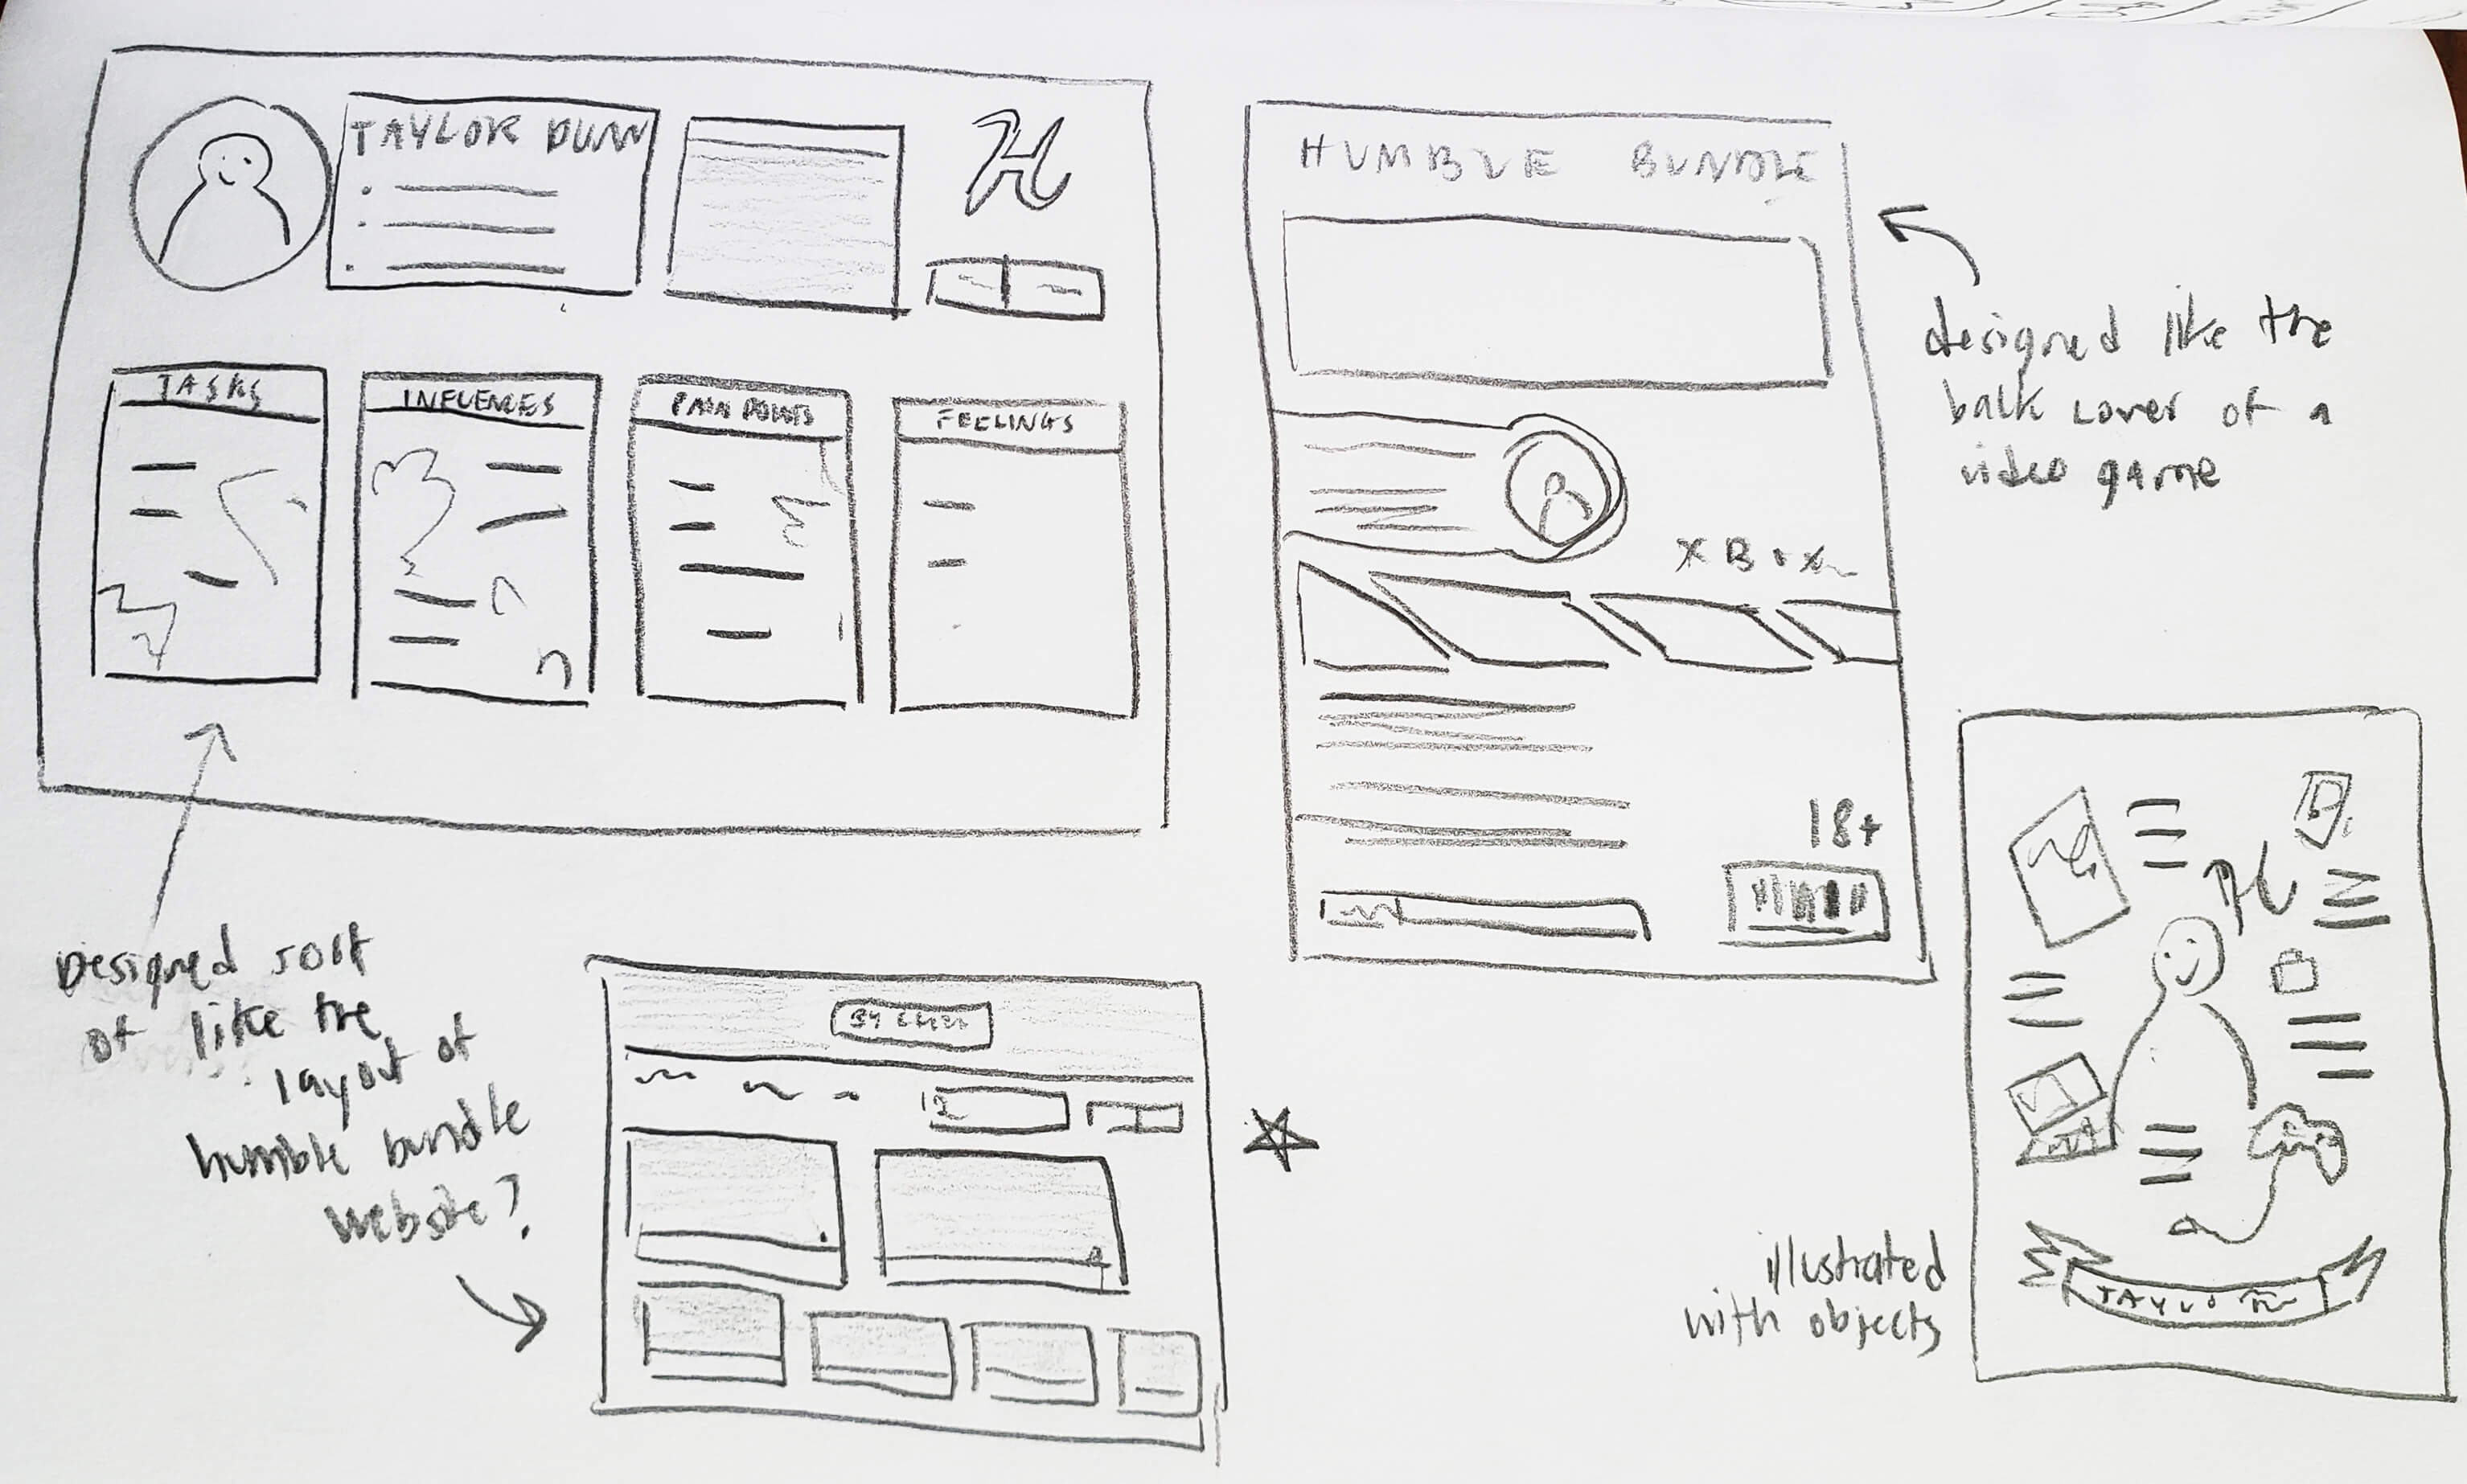 TAYLOR DUNN
H
TASKS
INFLUENCES
PAIN POINTS
FEELINGS
Designed sort
of like the
layout of
humble bundle
website?
HUMBLE BUNDLE
XBOX
18+
designed like the
back cover of a
video game
H
TAYLO
illustrated
with objects